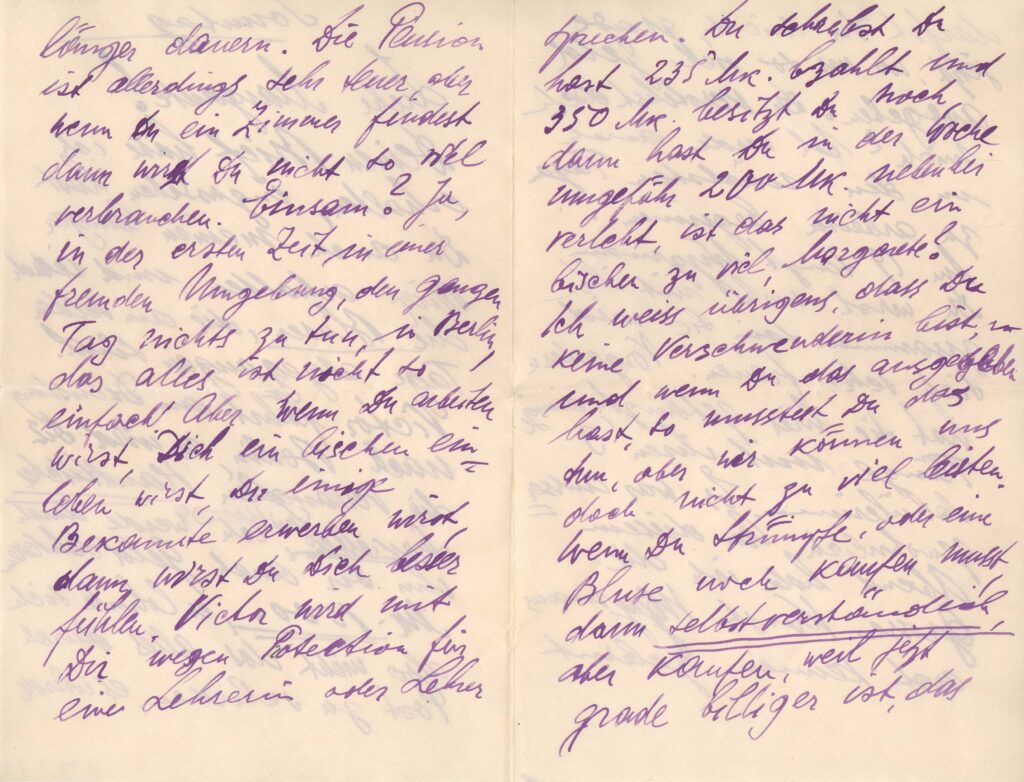 länger dauern. Die Pension
ist allerdings sehr teuer, aber
wenn Du ein Zimmer findest
dann wirst Du nicht so viel
verbrauchen. Einsam? Ja,
in der ersten Zeit, in einer
fremden Umgebung, den ganzen
Tag nichts zu tun, in Berlin,
das alles ist nicht so
einfach! Aber wenn Du arbeiten
wirst, Dich ein bischen ein=
leben wirst, Du einige
Bekannte erwerben wirst,
dann wirst Du Dich besser
fühlen. Victor wird mit
Dir wegen Protection für
eine Lehrerin oder Lehrer
sprechen. Du schreibst Du
hast 235 Mk. bezahlt und
350 Mk. besitzt Du noch,
dann hast Du in der Woche
ungefähr 200 Mk. nebenbei
verlebt, ist das nicht ein
bischen zu viel, Margarete?
Ich weiss übrigens, dass Du
keine Verschwenderin bist,
und wenn Du das ausgegeben
hast, so musstest Du das
tun, aber wir können uns
doch nicht zu viel leisten.
Wenn Du Strümpfe, oder eine
Bluse noch kaufen musst,
dann selbstverständlich,
aber kaufen, weil jetzt
grade billiger ist, das